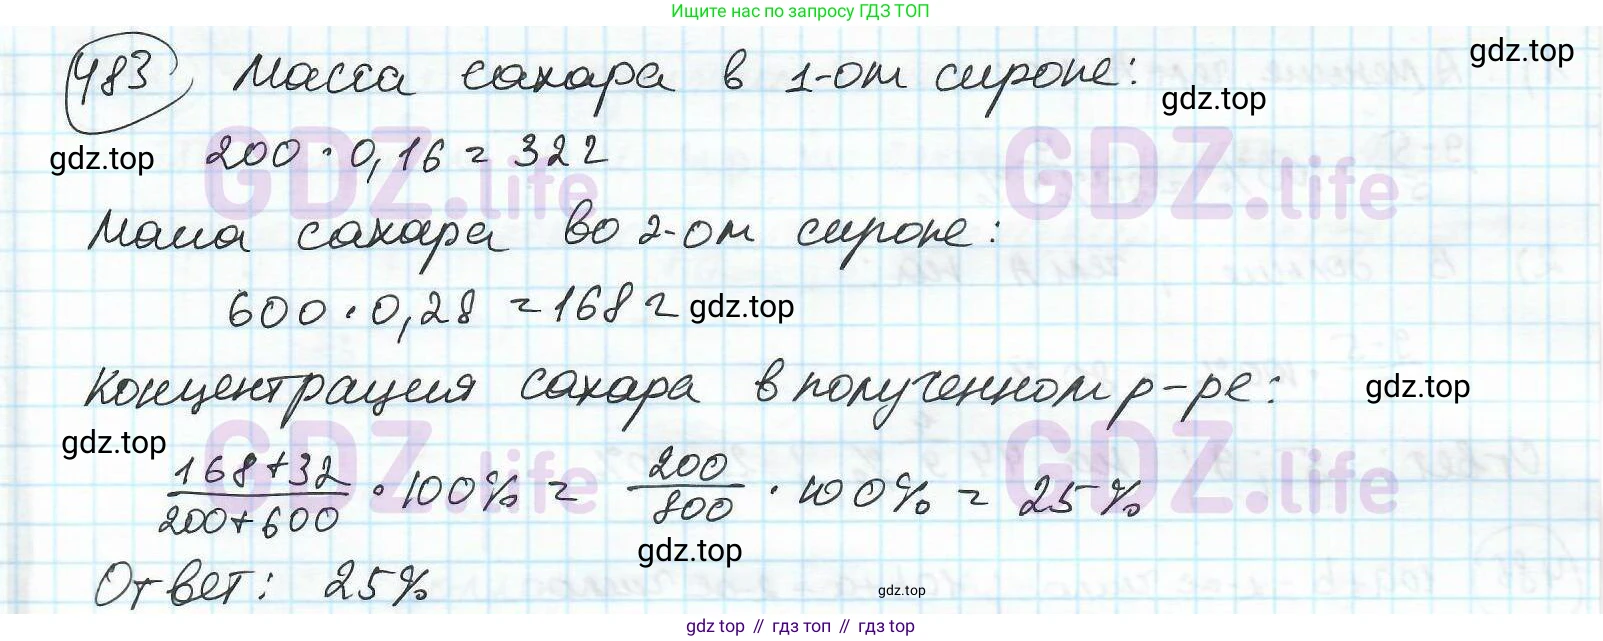 Ищите нас по запросу ГДЗ ТОП
483 Масса сахара в 1-ом сиропе:
gdz.top
gdz.top
gdz.top
200 · 0,16 = 32 г
GDZ.life GDZ.life
Масса сахара во 2-ом сиропе:
600 · 0,28 = 168 г
gdz.top
Концентрация сахара в полученном р-ре:
gdz.top
gdz.top
GDZ.life GDZ.life
168+32 / 200+600 · 100% = 200 / 800 · 100% = 25%
gdz.top
Ответ: 25%
gdz.top
gdz top // гдз топ // гдз top